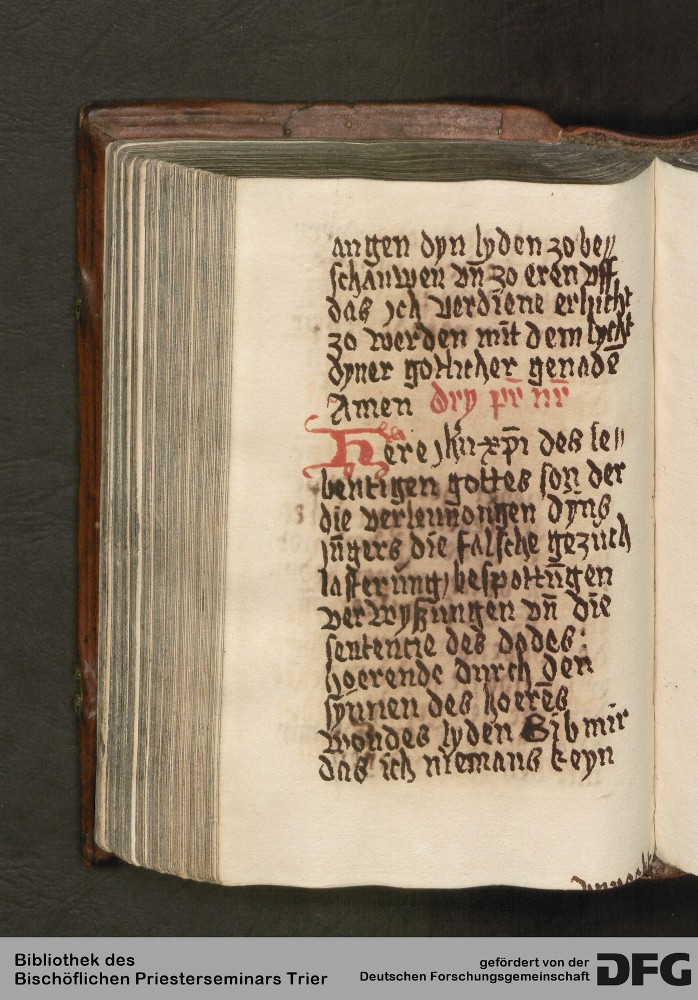 angen dyn lyden zo be//
schauwen vn̄ zo eren vff
das jch verdiene erlucht
zo werden mit dem lycht
dyner gotlicher genadē
Amen dry pr̄ nr̄
Here jhū xp̄i des le//
bentigen gottes son der
die verleun̄ongen dyn̄s
jn̄gers die falsche gezuch
lasterūng bespottūgen
verwyßūngen vn̄ die
sentencie des dodes
hoerende durch den
synnen des hoerēs
woldes lyden Gib mir
das ich niemans keyn
Bibliothek des
Bischöflichen Priesterseminars Trier
gefördert von der
Deutschen Forschungsgemeinschaft
DFG